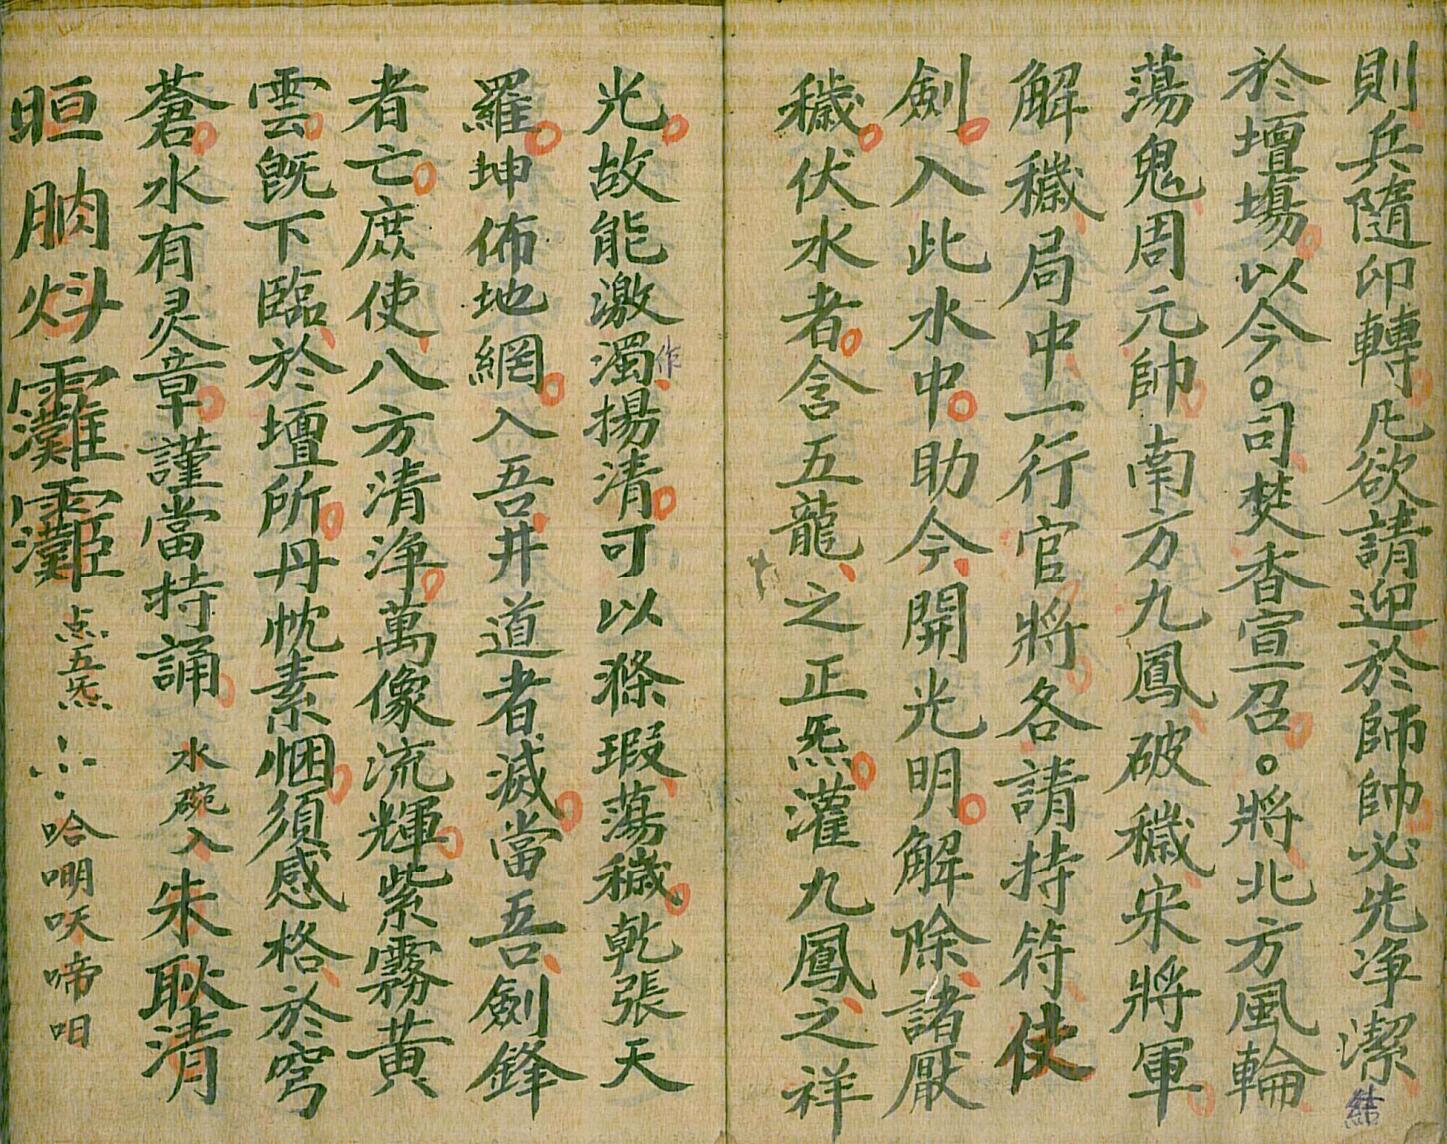 則兵隨印轉凡欲請迎於師帥必先净潔結
於壇場以今。司焚香宣召。將北方風輪
蕩鬼周元帥南方九鳳破穢宋將軍
解穢局中一行官將各請持符伏
劍入此水中助今開光明解除諸厭
穢伏水者含五龍之正炁灌九鳳之祥
光故能激濁作揚清可以滌瑕蕩穢乾張天
羅坤佈地網入吾井道者滅當吾劍鋒
者亡庶使八方清净萬像流輝紫霧黃
雲旣下臨於壇所丹忱素悃須感格於穹
蒼水有灵章謹當持誦 水碗入 朱耿清
点五炁 哈嘲吷啼呬